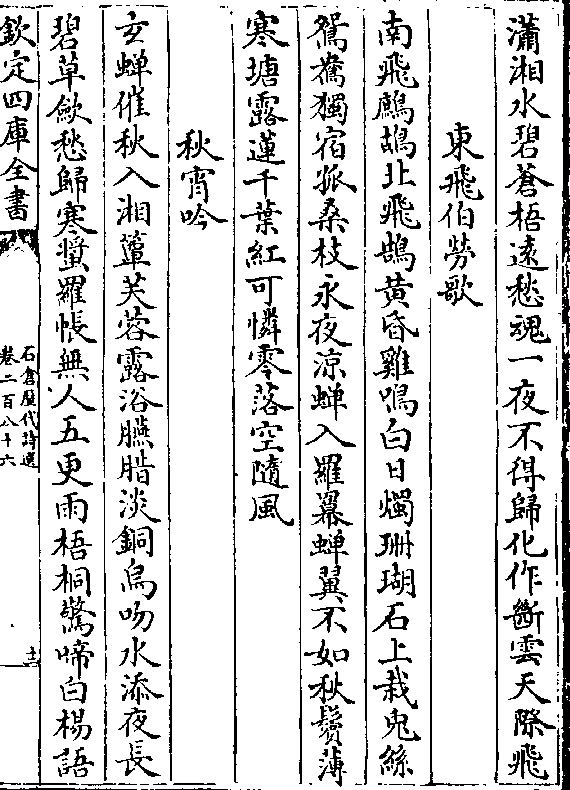 瀟湘水碧蒼梧遠愁魂一夜不得歸化作斷雲天際飛
東飛伯勞歌
南飛鷓鴣北飛鵠黄昏雞鳴白日燭珊瑚石上栽兎絲
鴛鴦獨宿孤桑枝永夜涼蟬入羅幕蟬翼不如秋鬢薄
寒塘露蓮千葉紅可憐零落空隨風
秋宵吟
玄蟬催秋入湘簟芙蓉露浴臙脂淡銅烏吻水添夜長
碧草斂愁歸寒螀羅帳無人五更雨梧桐驚啼白楊語
欽定四庫全書
石倉歷代詩選
卷二百八十六
十二